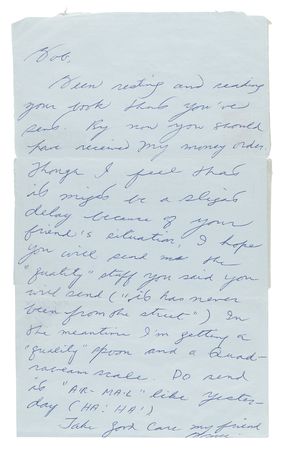 Bob,
Been resting and reading
your book that you've
sent. By now you should
have receive my money order.
Though I feel that
its might be a slight
delay because of your
friend's situation, I hope
you will send me the
"quality" stuff you said you
will send ("its has never
been from the street") In
the meantime I'm getting a
"quality" spoon and a Quad-
rabeam scale. Do send
it "AR-MAIL" like Yester-
day (HA! HA!)
Take good care my friend